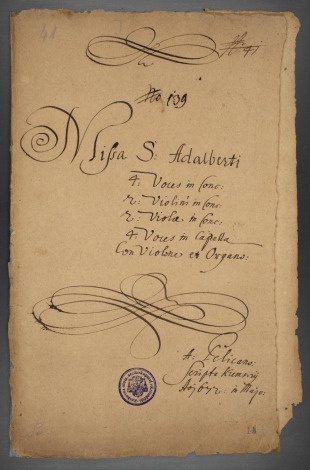 41
No 139
Missa S: Adalberti
4: Voces in Conc:
2: Violini in Conc:
2: Violæ in Conc:
4: Voces in Capella
Con Violone et Organo:
A: Pelicano:
scripta
Aº 1672: in Majo: